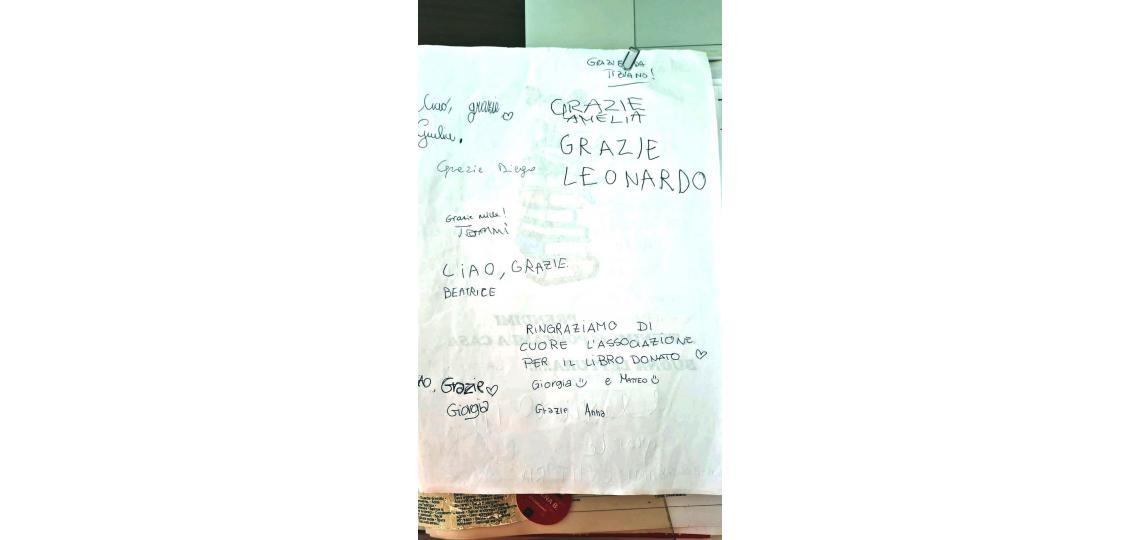 GRAZIE DA
TIZIANO!
Ciao, grazie
Giulia.
GRAZIE
AMELIA
GRAZIE
LEONARDO
Grazie Diego
Grazie mille!
TOMMI
CIAO, GRAZIE.
BEATRICE
RINGRAZIAMO DI
CUORE L'ASSOCIAZIONE
PER IL LIBRO DONATO
Giorgia e MATTEO
AO, Grazie
Giorgia
Grazie Anna